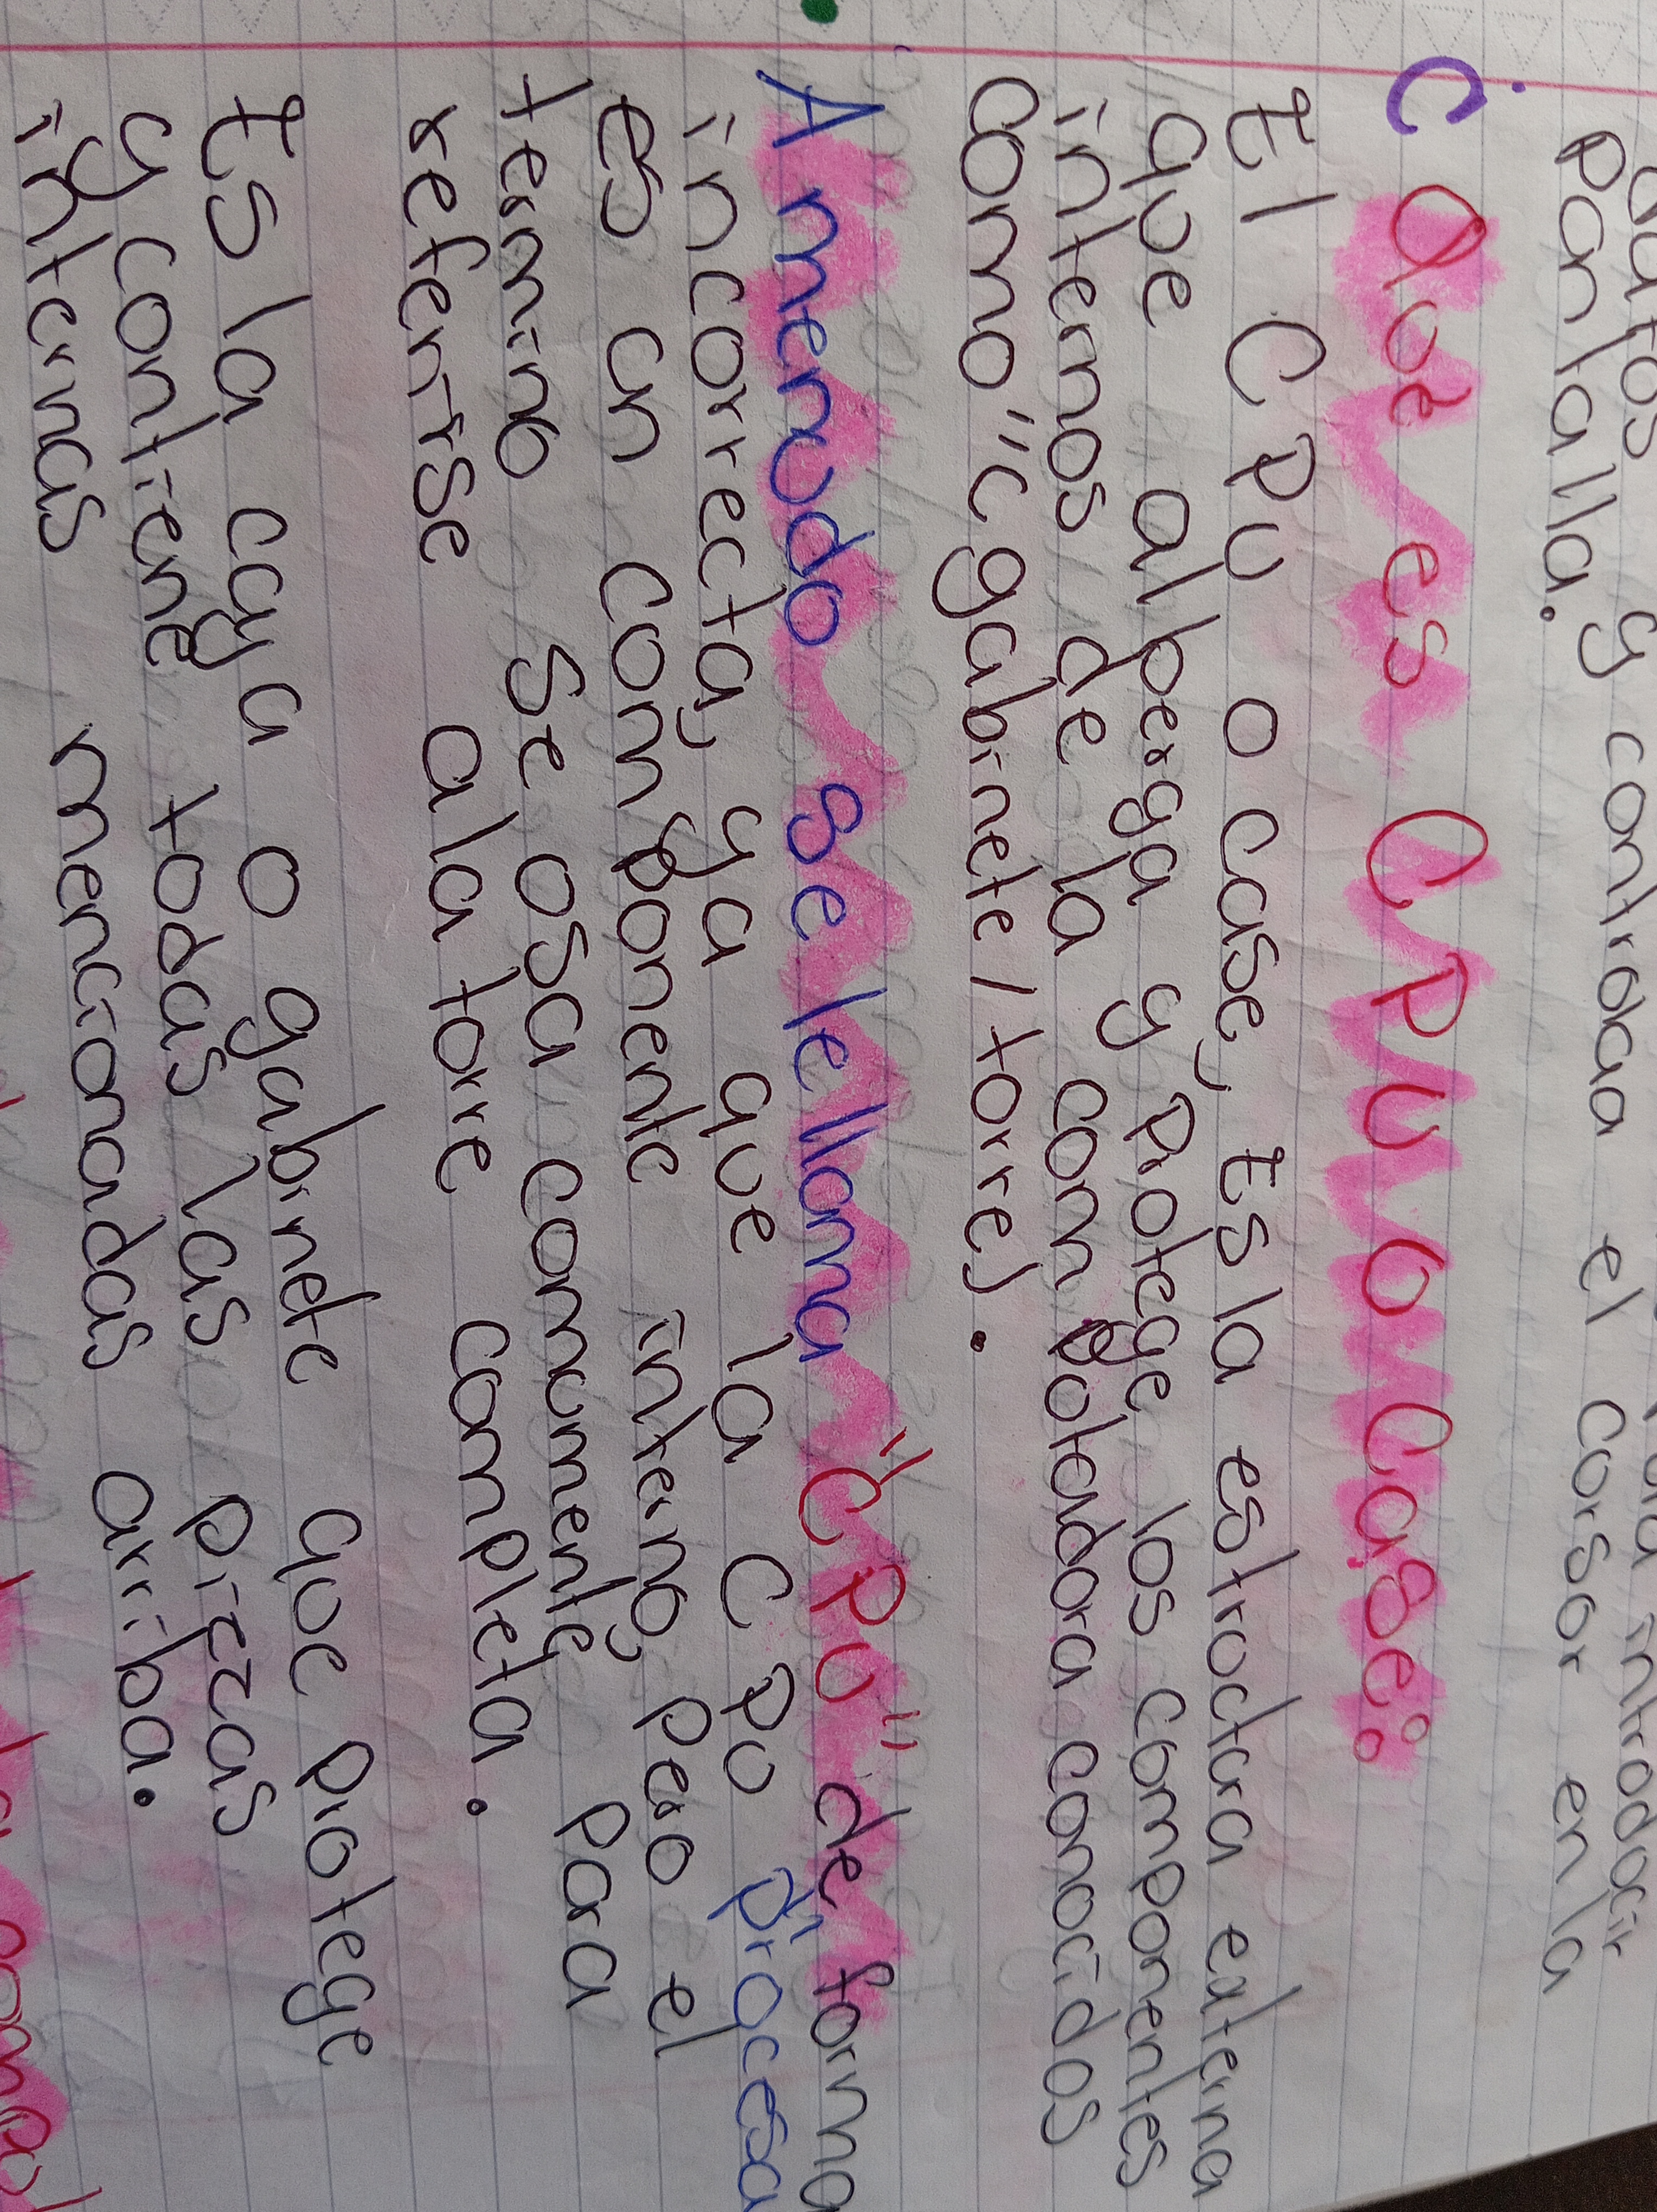 datos y controlaa el corsor en la
pantalla.
¿ Qué es CPU o Case:
El CPU o case, Es la estroctura externa
que alberga y protege los componentes
internos de la compotadora conocidos
como "cgabinete / torre).
Amenudo se le llama "CPU" de forma
incorrecta, ya que la CPU procesa
es un componente interno, pero el
termino Se osa comunmente, para
referirse ala torre completa.
Es la caya o gabinete que protege
y contiene todas las piezas
internas mencionadas arriba.